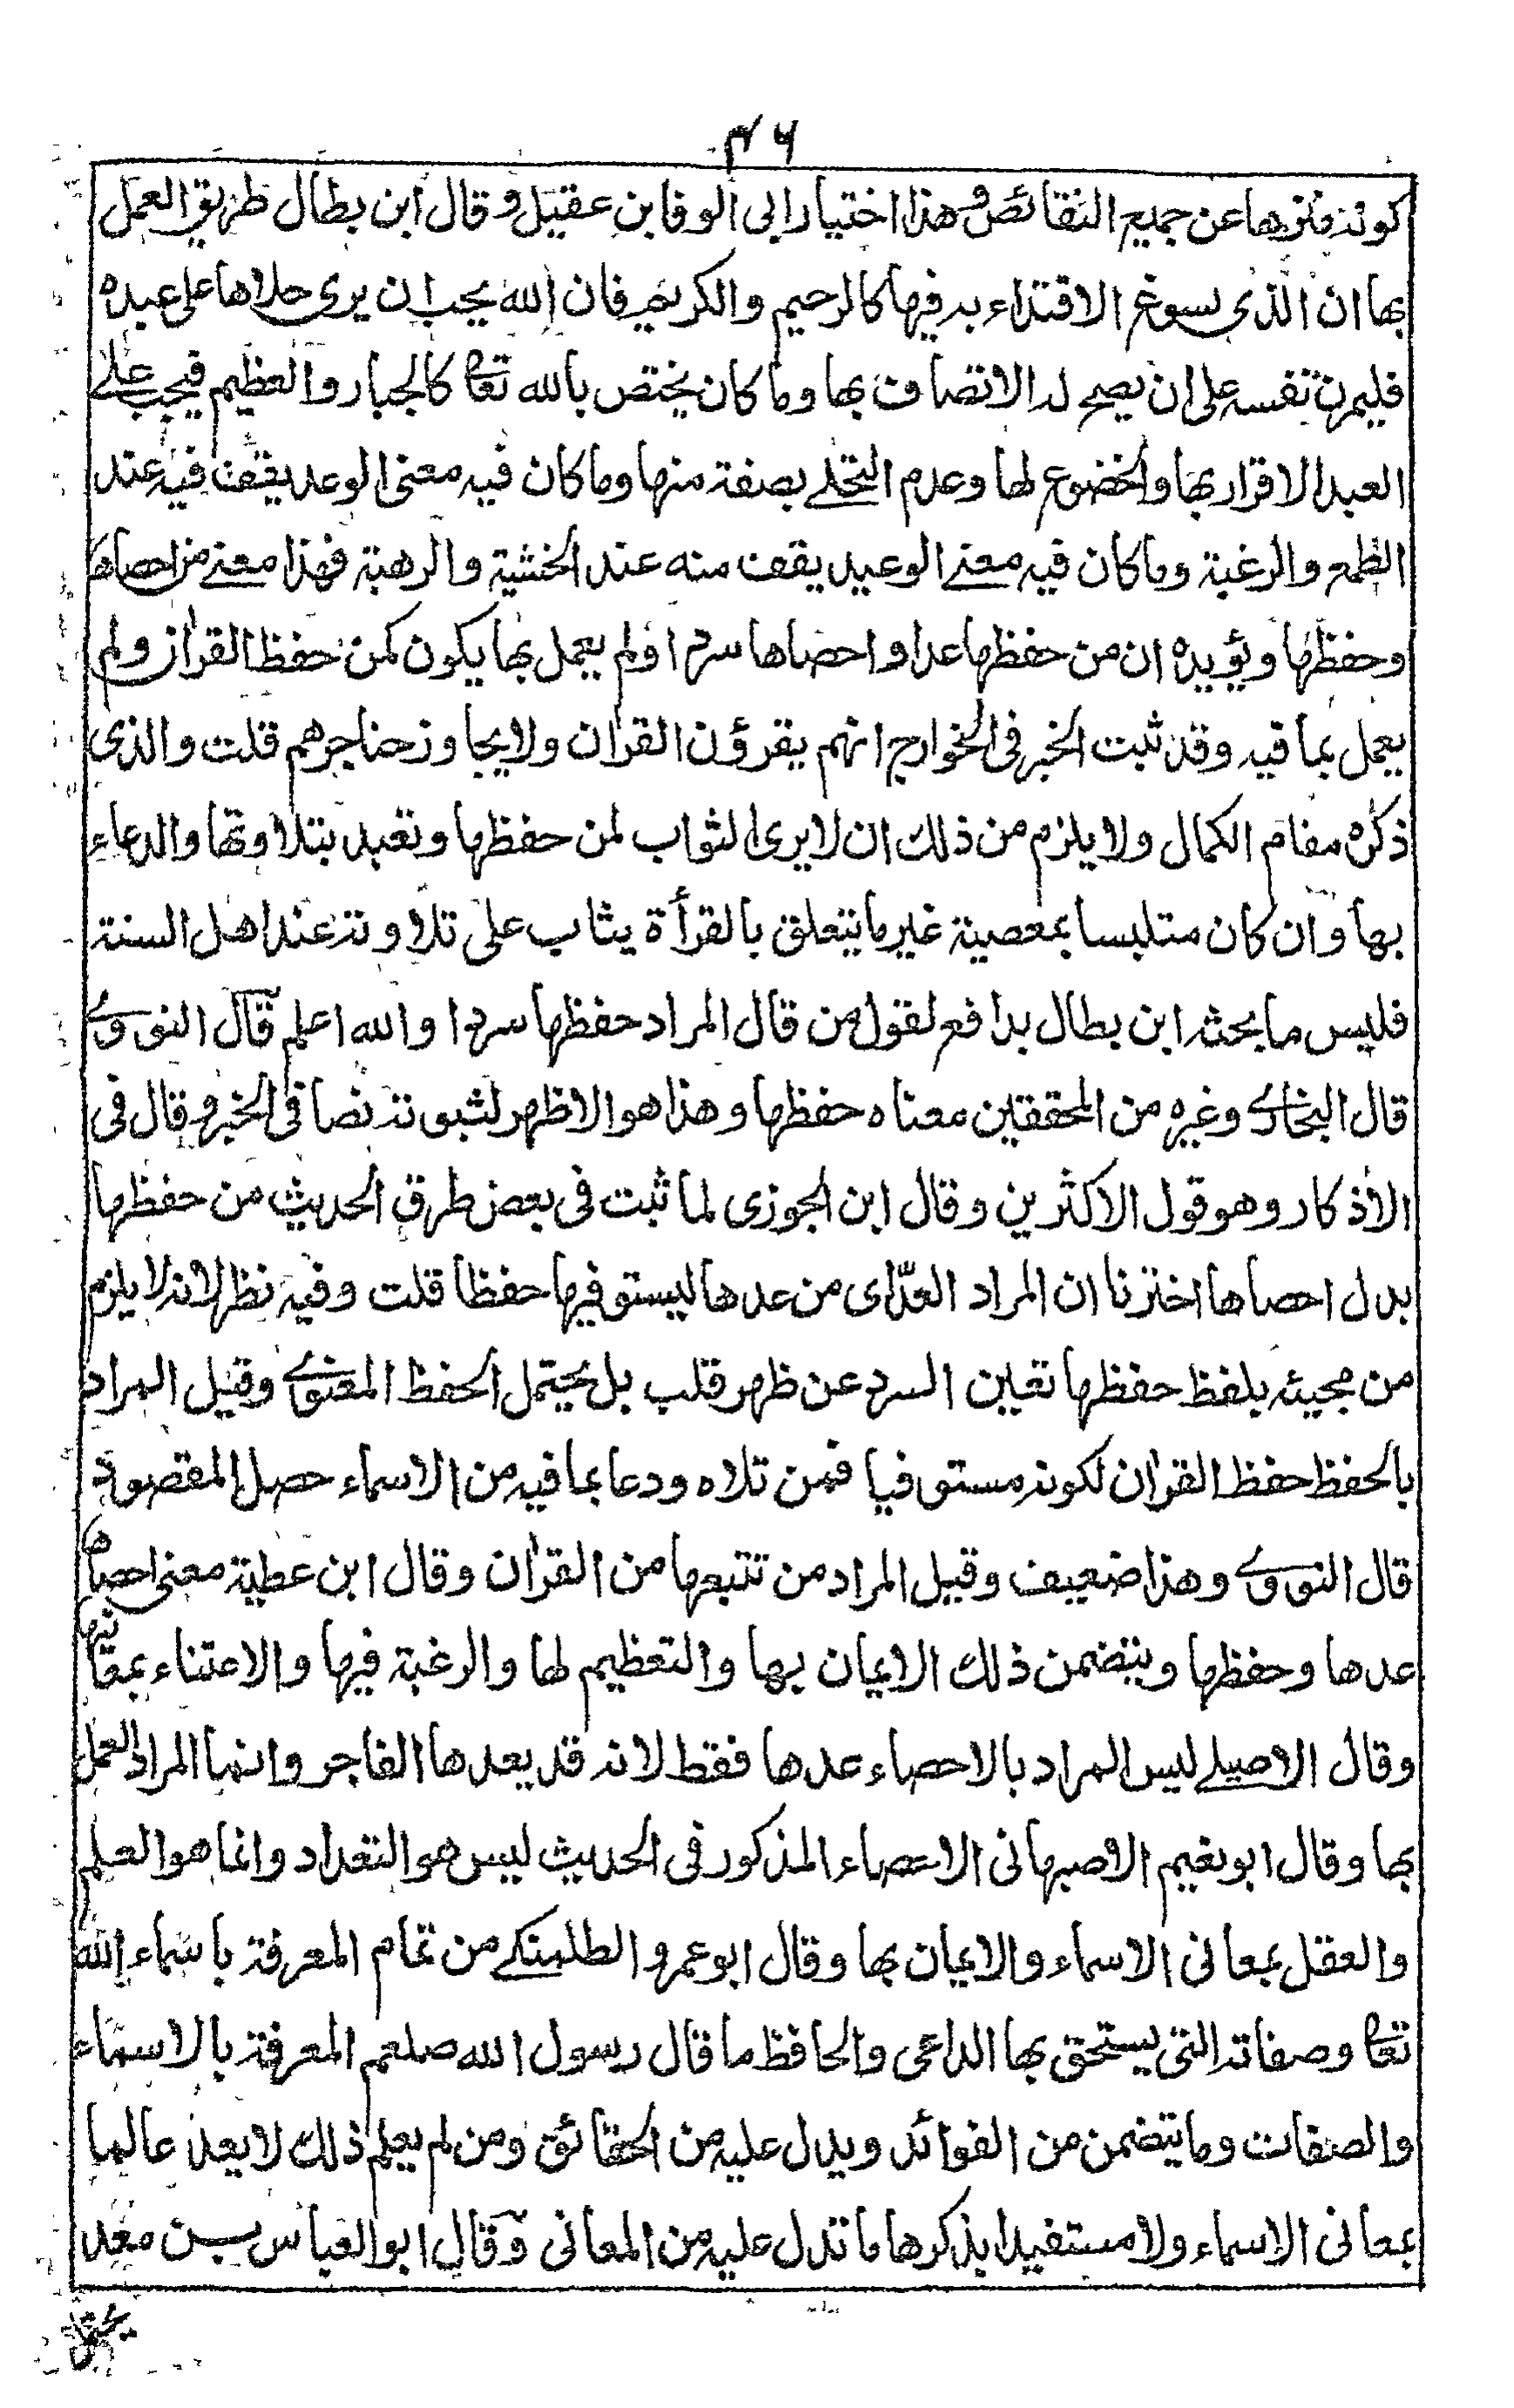 ٤٦
كونه منزها عن جميع النقائص وهذا اختيار ابى الوفا بن عقيل وقال ابن بطال طريق العمل
بها ان الذى يسوغ الاقتداء به فيها كالرحيم والكريم فان الله يحب ان يرى حلاها على عبده
فليمرن نفسه على ان يصح له الاتصاف بها وما كان يختص بالله تعا كالجبار والعظيم فيجب على
العبد الاقرار بها والخضوع لها وعدم التحلى بصفة منها وما كان فيه معنى الوعد يقف فيه عند
الطمع والرغبة وما كان فيه معنى الوعيد يقف منه عند الخشية والرهبة فهذا معنى من احصاها
وحفظها ويؤيده ان من حفظها عدا واحصاها سردا ولم يعمل بها يكون كمن حفظ القران ولم
يعمل بما فيه وقد ثبت الخبر فى الخوارج انهم يقرؤن القران ولا يجاوز حناجرهم قلت والذى
ذكره مقام الكمال ولا يلزم من ذلك ان لا يرى الثواب لمن حفظها وتعبد بتلاوتها والدعاء
بها وان كان متلبسا بمعصية غير ما يتعلق بالقرأة يثاب على تلاوته عند اهل السنة
فليس ما بحثه ابن بطال بدافع لقول من قال المراد حفظها سردا والله اعلم قال النووى
قال البخارى وغيره من المحققين معناه حفظها وهذا هو الاظهر لثبوته نصا فى الخبر وقال فى
الاذكار وهو قول الاكثرين وقال ابن الجوزى لما ثبت فى بعض طرق الحديث من حفظها
بدل احصاها اخترنا ان المراد العدّ اى من عدها ليستوفيها حفظا قلت وفيه نظر لانه لا يلزم
من مجيئه بلفظ حفظها تعين السرد عن ظهر قلب بل يحتمل الحفظ المعنوى وقيل المراد
بالحفظ حفظ القران لكونه مستوفيا فمن تلاه ودعا بما فيه من الاسماء حصل المقصود
قال النووى وهذا ضعيف وقيل المراد من تتبعها من القران وقال ابن عطية معنى احصاها
عدها وحفظها ويتضمن ذلك الايمان بها والتعظيم لها والرغبة فيها والاعتناء بمعانيها
وقال الاصيلى ليس المراد بالاحصاء عدها فقط لانه قد يعدها الفاجر وانما المراد العمل
بها وقال ابو نعيم الاصبهانى الاحصاء المذكور فى الحديث ليس هو التعداد وانما هو العلم
والعقل بمعانى الاسماء والايمان بها وقال ابو عمرو الطلمنكى من تمام المعرفة باسماء الله
تعا وصفاته التى يستحق بها الداعى والحافظ ما قال رسول الله صلعم المعرفة بالاسماء
والصفات وما يتضمن من الفوائد ويدل عليه من الحقائق ومن لم يعلم ذلك لا يعد عالما
بمعانى الاسماء ولا مستفيدا بذكرها ما تدل عليه من المعانى وقال ابو العباس بن معد
يحتمل